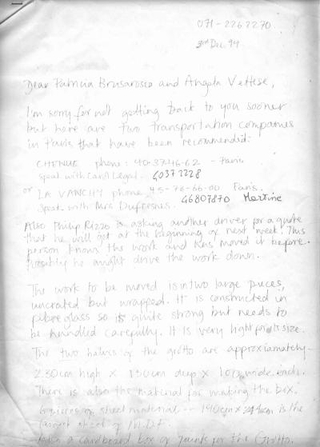 071-2262270
2nd Dec. 94
Dear Patricia and Angela Vettese,
I'm sorry for not getting back to you sooner
but here are two transportation companies
in Paris that have been recommended:
CHENUE phone: 40-3746-62 - Paris
speak with 40377228
or LA VANCHY phone 45-76-66-00 Paris.
Speak with Mrs 46807870 Martine
Also Philip Rizzo is asking another driver for a quote
that he will get at the beginning of next week. This
person knows the work and has moved it before.
Possibly he might drive the work down.
The work to be moved is in two large pieces,
uncrated but wrapped. It is constructed in
fibreglass so is quite strong but needs to
be handled carefully. It is very light for its size.
The two halves of the grotto are approximately
2.30cm high × 130cm deep × wide each.
There is also the material for making the box.
sheet material is the
largest sheet of
a cardboard box of paints for the Grotto.